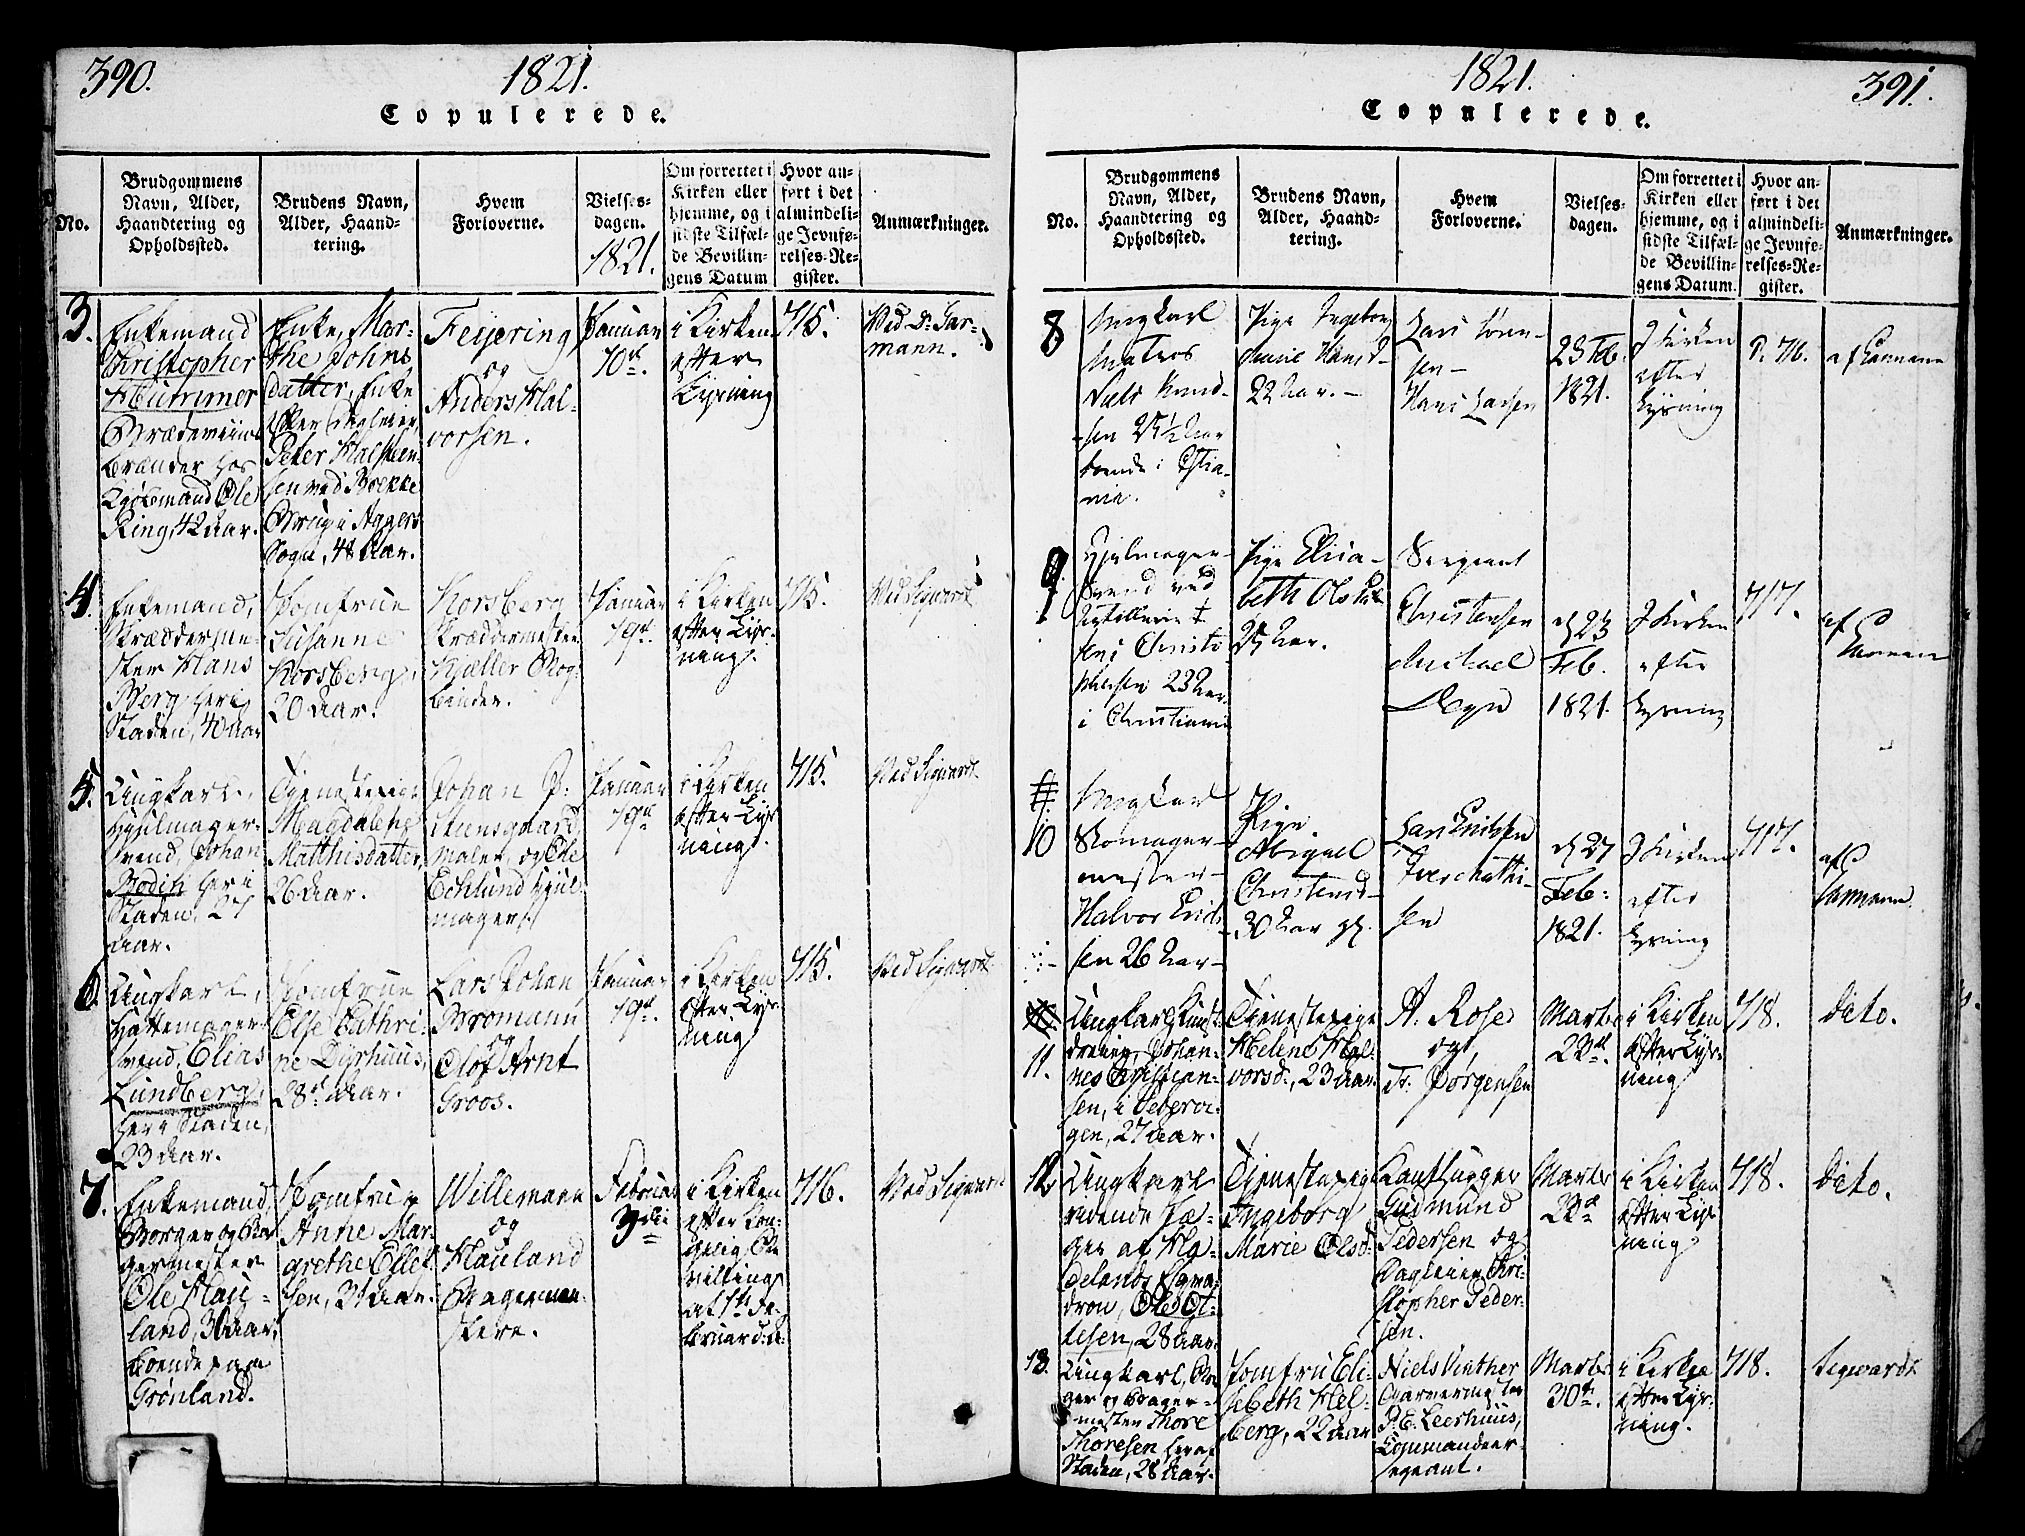 390.
1821.
Copulerede.
No.
Brudgommens
Navn, Alder,
Haandtering og
Opholdssted.
Brudens Navn,
Alder, Haand-
tering.
Hvem
Forloverne.
Vielses-
dagen.
1821.
Om forrettet i
Kirken eller
hjemme, og i
sidste Tilfæl-
de Bevillin-
gens Datum
Hvor an-
ført i det
almindeli-
ge Jevnfø-
relses-Re-
gister.
Anmærkninger.
3.
Enkemand
Christopher
Hummer
brænder hos
Ole
Ring, 42 Aar.
Enke, Mar-
the Johns
datter, Enke
efter
Peter Halsteen-
sen ved Brekke
Brug i Aggers
Sogn, 48 Aar.
Feijering
og
Anders Hal-
vorsen.
Januar
10de.
i Kirken
efter
Lysning
715.
Ved Dr. Gar-
mann.
4.
Enkemand,
Skrædderme-
ster Hans
Berg her i
Staden, 40 Aar
Jomfrue
Susanne
Korsberg,
20 Aar.
Korsberg
Skræddermester
Kjeller Bog-
binder.
Januar
19de.
i Kirken
efter Lys-
ning.
715.
Ved Sigwardt
5.
Ungkarl,
Hjulmager-
svend, Johan
Bodin her i
Staden, 27
Aar.
Tjenestepige
Magdalene
Matthisdatter,
26 Aar.
Johan P:
Muensgaard,
Maler, og Ole
Ecklund Hjul-
mager.
Januar
19de
i Kirken
efter Lys-
ning.
715.
Ved Sigwardt.
6.
Ungkarl,
Hattemager-
svend, Elias
Lundberg,
her i Staden,
23 Aar.
Jomfrue
Else Cathri-
ne Dyrhuus,
28 Aar.
Lars Johan
Bromann
og
Olof Arnt
Groos.
Januar
19de.
i Kirken
efter Lys-
ning.
715.
Ved Sigwardt
7.
Enkemand,
Borger og Ba-
germester
Ole Hau-
land, 36 Aar,
boende paa
Grønland.
Jomfrue
Anne Mar-
grethe Ellef-
sen, 31 Aar.
Willemann
og
Hauland
Bagerme-
stere.
Februar
i Kirken
efter Kon-
gelig Be-
villing
af 1ste Fe-
bruar
716.
Ved Sigwardt
1821.
391.
Copulerede.
No.
Brudgommens
Navn, Alder,
Haandtering og
Opholdssted.
Brudens Navn,
Alder, Haand-
tering.
Hvem
Forloverne.
Vielses-
dagen.
Om forrettet i
Kirken eller
hjemme, og i
sidste Tilfæl-
de Bevillin-
gens Datum.
Hvor an-
ført i det
almindeli-
ge Jevnfø-
relses-Re-
gister.
Anmærkninger.
8
Ungkarl
Matros
Niels Knud-
sen 25½ Aar
boende i Chstia-
nia.
Pige Ingeborg
Marie Hansd-
22 Aar. -
Lars Søren-
sen -
Hans Larsen
23 Feb.
1821.
I Kirken
efter
Lysning
P. 716.
af Garmann
9.
Hjulmager-
Svend ved
Artilleriet
Jens Christo
phersen 23 Aar
i Christiania
Pige Elisa-
beth
25 Aar.
Sergeant
Christensen
Michael
Dyn
d 23
Feb.
1821.
I Kirken
efter
Lysning
717.
af
Garmann
10
Ungkarl
Skomager-
mester-
Halvor Erich-
sen 26 Aar-
Pige
Abigael
Christensd-
30 Aar gl.
Lars Erichsen
Iver Mathi-
sen
d 27
Feb:
1821.
I Kirken
efter
Lysning
717.
af
Garmann.
11.
Ungkarl, Kunst-
dreier, Johan-
nes Christian-
sen, i Pebervi-
gen, 27 Aar.
Tjenestepige
Helene Hal-
vorsd., 23 Aar.
A. Rose
og
Fr. Jørgensen
Marts
23de.
i Kirken
efter Lys-
ning
718.
dito.
12
Ungkarl
ridende Jæ-
ger af Ha-
delands Esqva-
dron, Ole Ol-
lesen, 28 Aar.
Tjenestepige
Ingeborg
Marie Olsd.
Gudmund
Pedersen og
Dagleier Chri-
stopher Peder-
sen.
Marts
23de
i Kirken
efter Lys-
ning
718.
dito.
13.
Ungkarl, Bor-
ger og Bager-
mester Thore
Thoresen her af
Staden, 28 Aar.
Jomfru Eli-
sebeth Hel-
berg, 22 Aar
Niels Vinther
P. E. Leerhuus,
Commandeer-
sergeant.
Marts
30te.
i Kirke
efter Lys-
ning.
718.
Segwardt